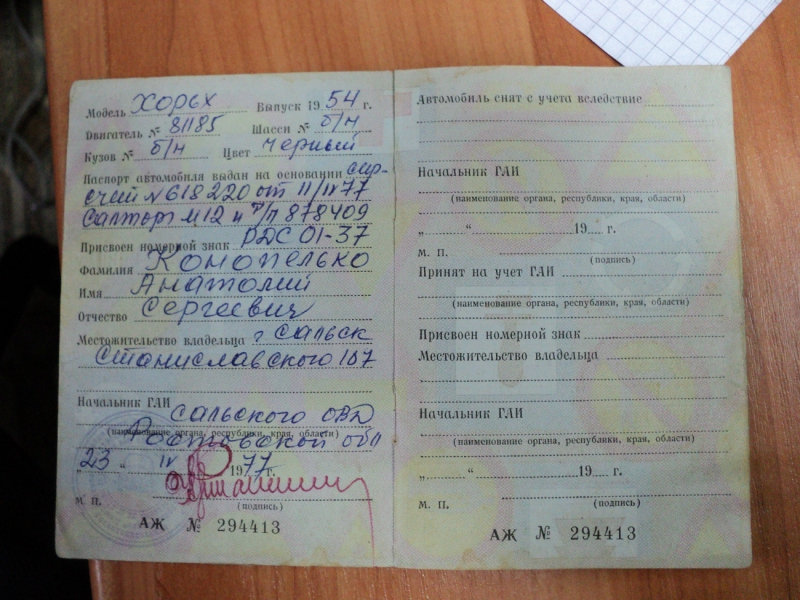 Модель Хорьх Выпуск 1954 г.
Двигатель № 81185 Шасси № б/н
Кузов № б/н Цвет Черный
Паспорт автомобиля выдан на основании
счет № 618220 от 11/IV 77
М12 и 878409
Присвоен номерной знак РДС 01-37
Фамилия Конопелько
Имя Анатолий
Отчество Сергеевич
Местожительство владельца г Сальск
Станиславского 107
Начальник ГАИ Сальского ОВД
(наименование органа, республики, края, области)
Ростовской обл
„23 „ IV 1977 г.
М. П. (подпись)
АЖ № 294413
Автомобиль снят с учета вследствие
Начальник ГАИ
(наименование органа, республики, края, области)
„ “ 19 г.
М. П. (подпись)
Принят на учет ГАИ
(наименование органа, республики, края, области)
Присвоен номерной знак
Местожительство владельца
Начальник ГАИ
(наименование органа, республики, края, области)
„ “ 19 г.
М. П. (подпись)
АЖ № 294413